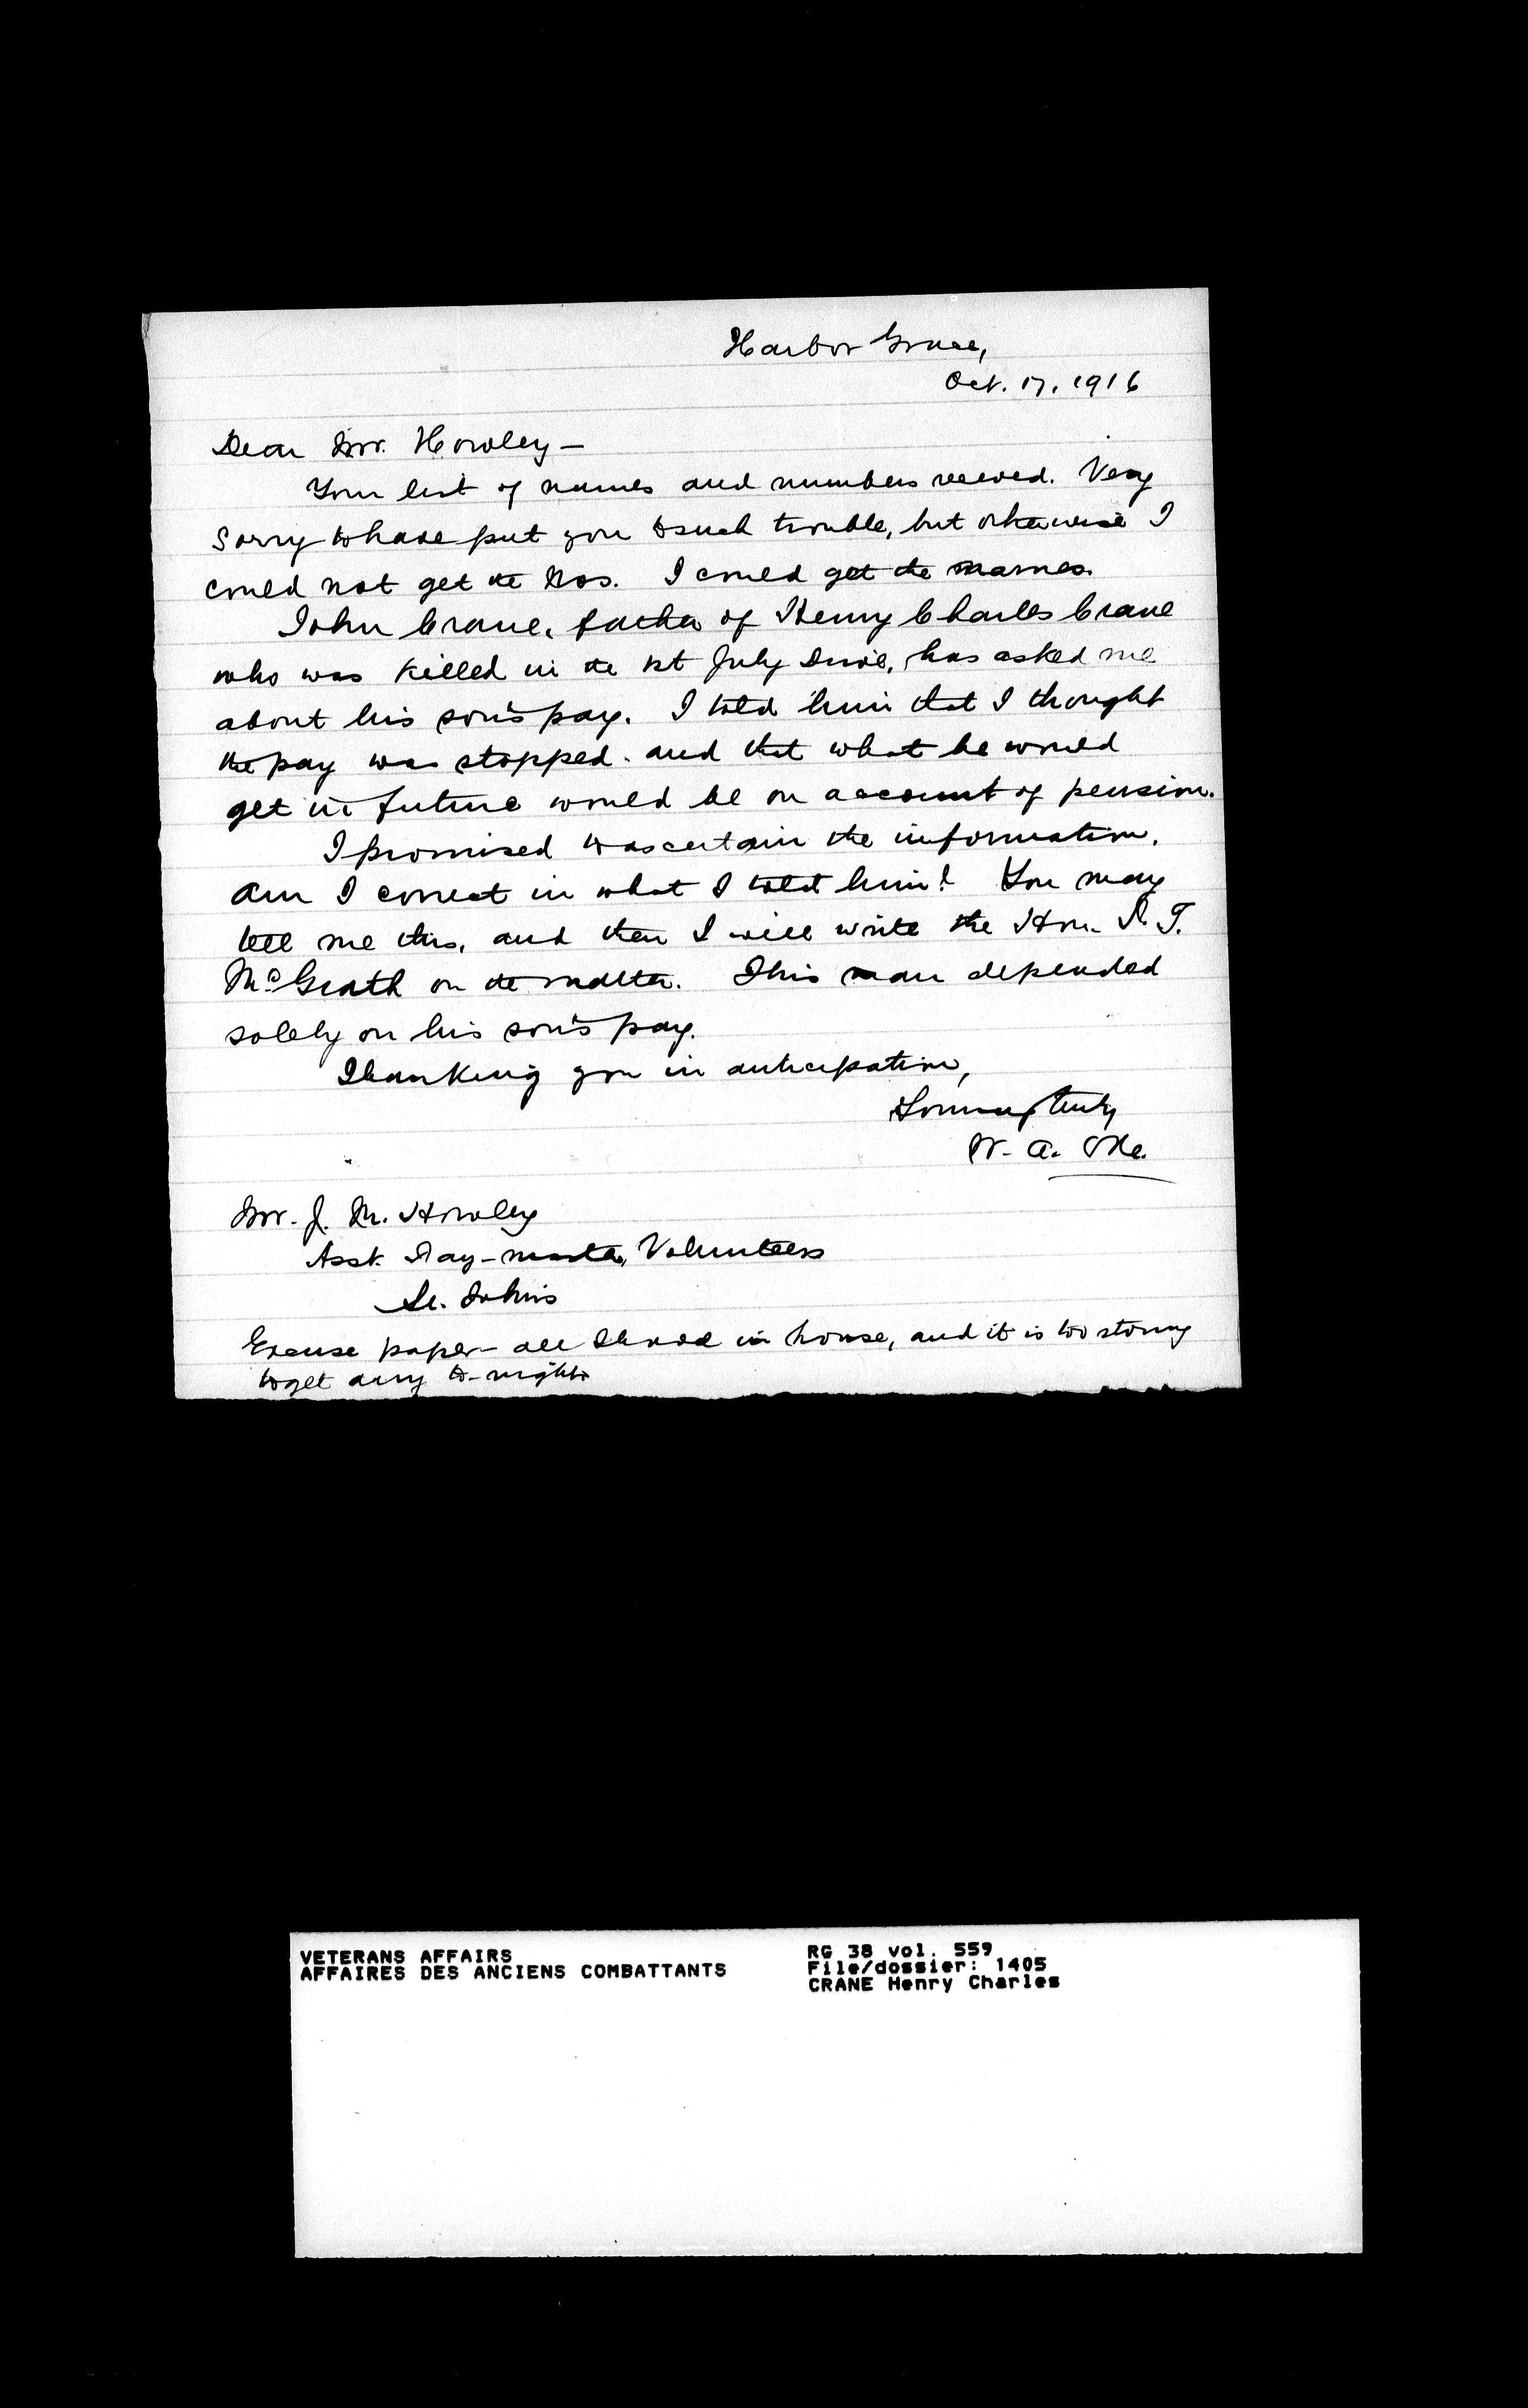 Harbor Grace,
Oct. 17, 1916
Dear Mr. Howley —
Your list of names and numbers received. Very
sorry to have put you to such trouble, but otherwise I
could not get the Nos. I could get the names.
John Crane, father of Henry Charles Crane
who was killed in the 1st July Drive, has asked me
about his son's pay. I told him that I thought
the pay was stopped and that what he would
get in future would be on account of pension.
I promised to ascertain the information.
Am I correct in what I told him? You may
tell me this, and then I will write the Hon. P. T.
McGrath on the matter. This man depended
solely on his son's pay.
Thanking you in anticipation,
Yours truly
W. A. Oke.
Mr. J. M. Howley
Asst. Pay-master, Volunteers
St. John's
Excuse paper - all in house, and it is too stormy
to get any to-night
VETERANS AFFAIRS
AFFAIRES DES ANCIENS COMBATTANTS
RG 38 vol. 559
File/dossier: 1405
CRANE Henry Charles